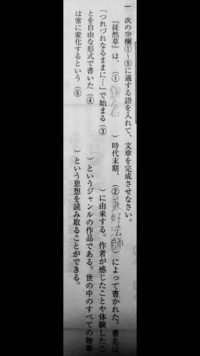 一 次の空欄①～⑤に適する語を入れて、文章を完成させなさい。
『徒然草』は、（① ）時代末期、（② 兼好法師 ）によって書かれた。書名は
「つれづれなるままに…」で始まる（③ ）に由来する。作者が感じたことや体験したこ
とを自由な形式で書いた（④ ）というジャンルの作品である。世の中のすべての物事
は常に変化するという（⑤ ）という思想を読み取ることができる。